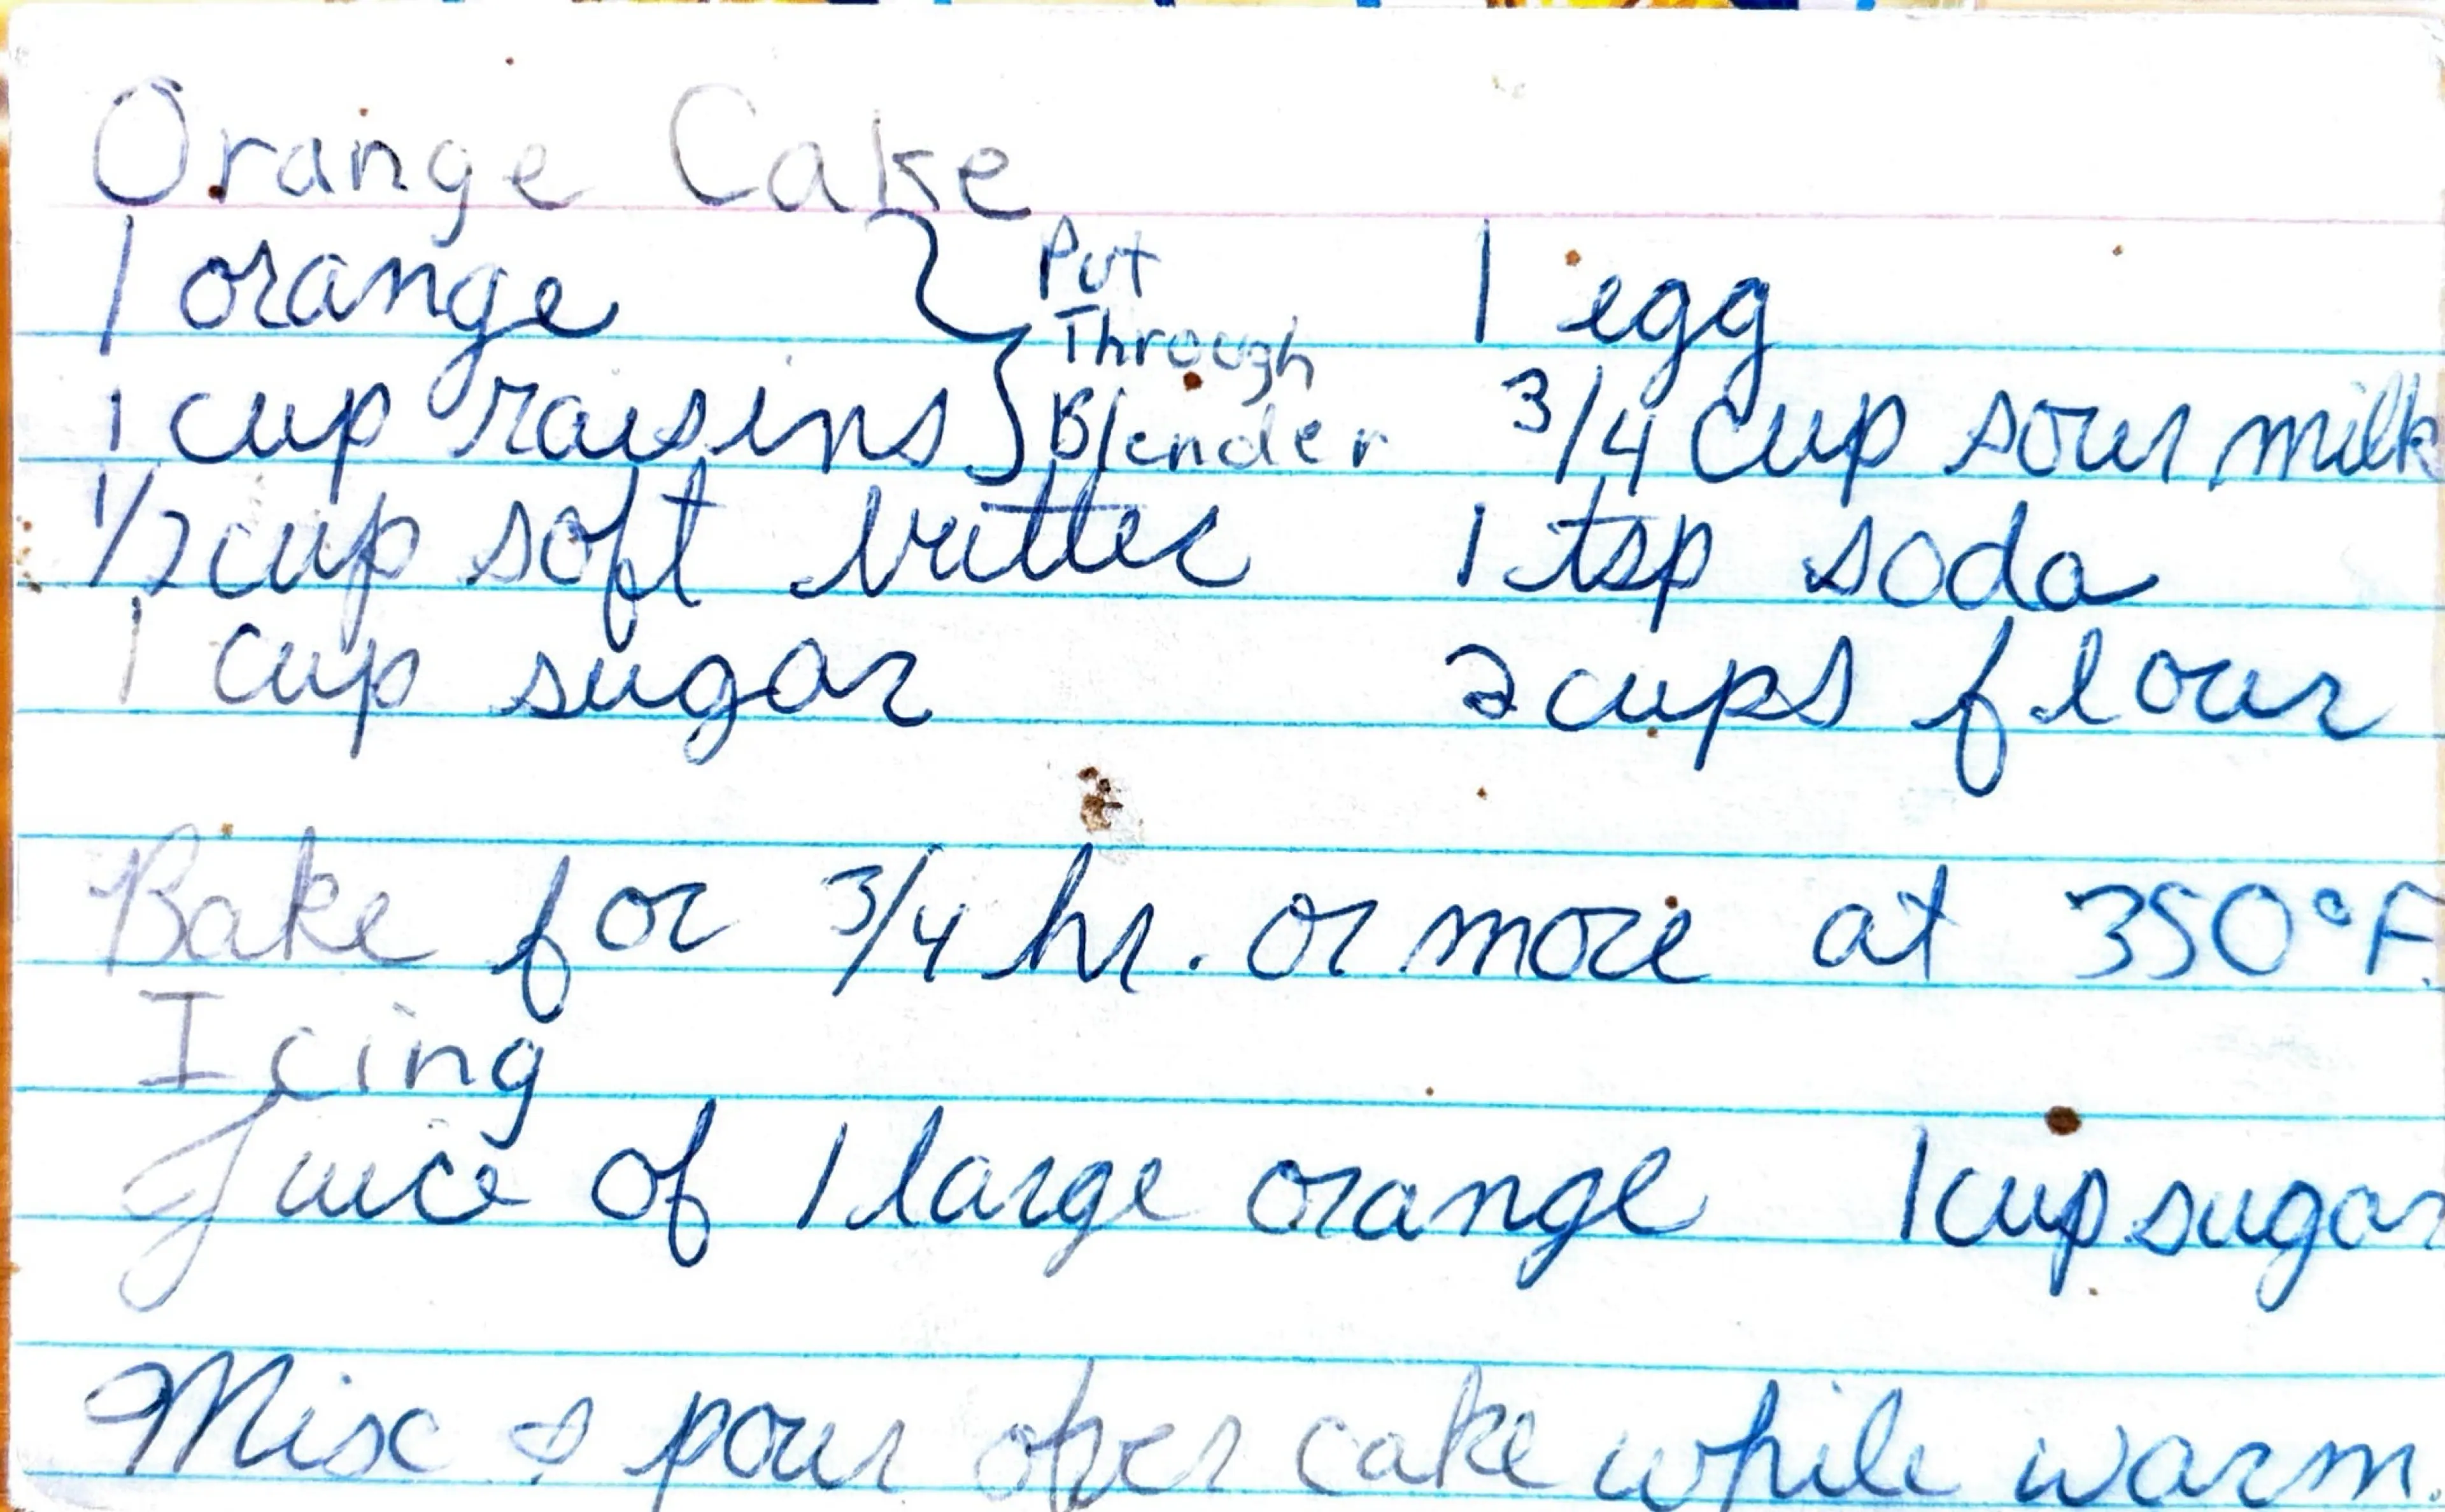 Orange Cake
1 orange } Put Through Blender 1 egg
1 cup raisins 3/4 cup sour milk
1/2 cup soft butter 1 tsp soda
1 cup sugar 2 cups flour
Bake for 3/4 hr. or more at 350°F.
Icing
Juice of 1 large orange 1 cup sugar
Mix & pour over cake while warm.